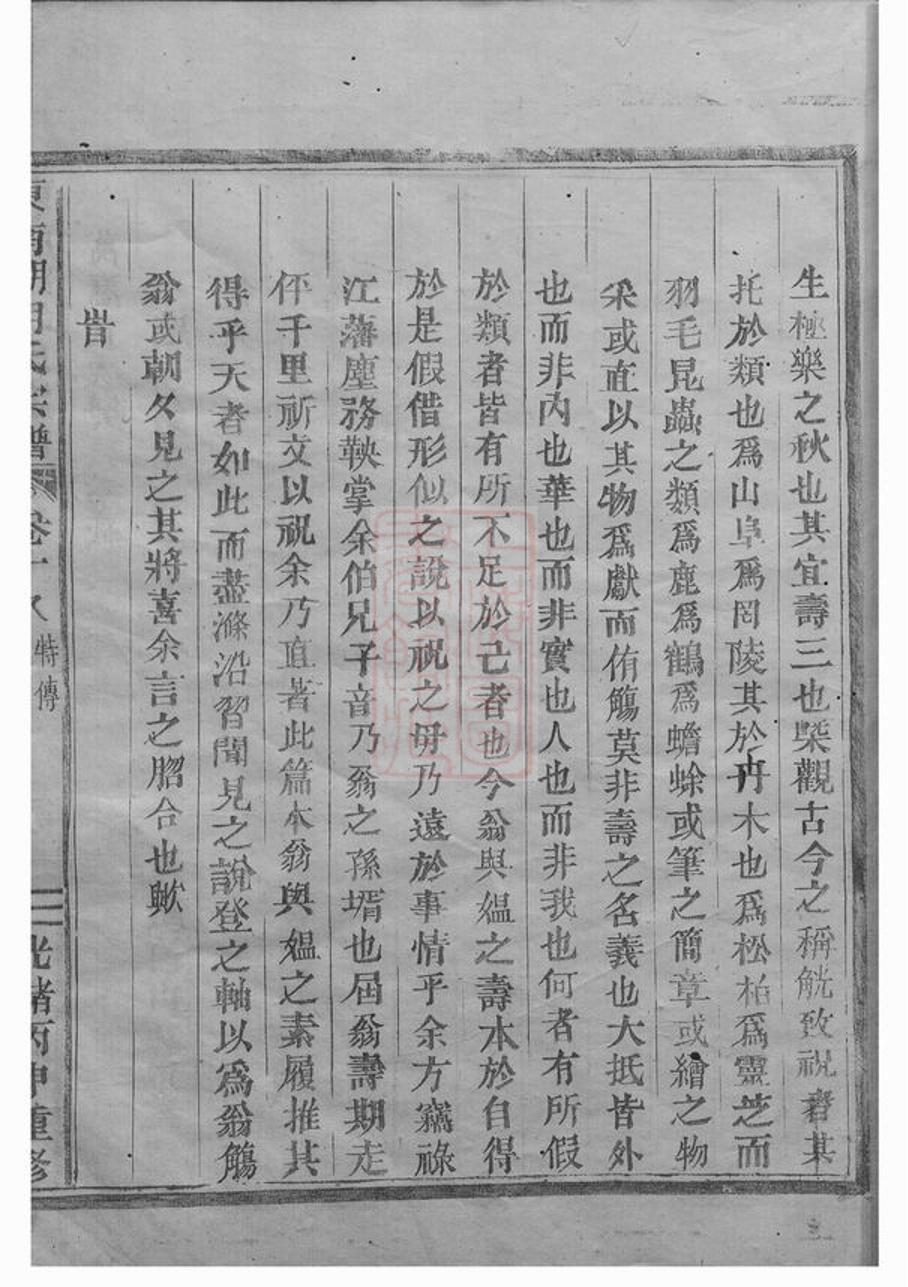 生極樂之秋也其宜壽三也槩觀古今之稱觥致祝者某
托於類也爲山阜爲罔陵其於卉木也爲松柏爲靈芝而
羽毛昆蟲之類爲鹿爲鶴爲蟾蜍或筆之簡章或繪之物
釆或直以其物爲獻而侑觴莫非壽之名義也大抵皆外
也而非內也華也而非實也人也而非我也何者有所假
於類者皆有所不足於己者也今翁與媼之壽本於自得
於是假借形似之說以祝之毋乃遠於事情乎余方竊祿
江藩塵務鞅掌余伯兄子音乃翁之孫壻也屆翁壽期走
伻千里祈文以祝余乃直著此篇本翁與媼之素履推其
得乎天者如此而盡滌沿習聞見之說登之軸以爲翁觴
翁或朝夕見之其將喜余言之脗合也歟
旹
湖 氏宗譜 卷十八 特傳 二 光緒丙申重修